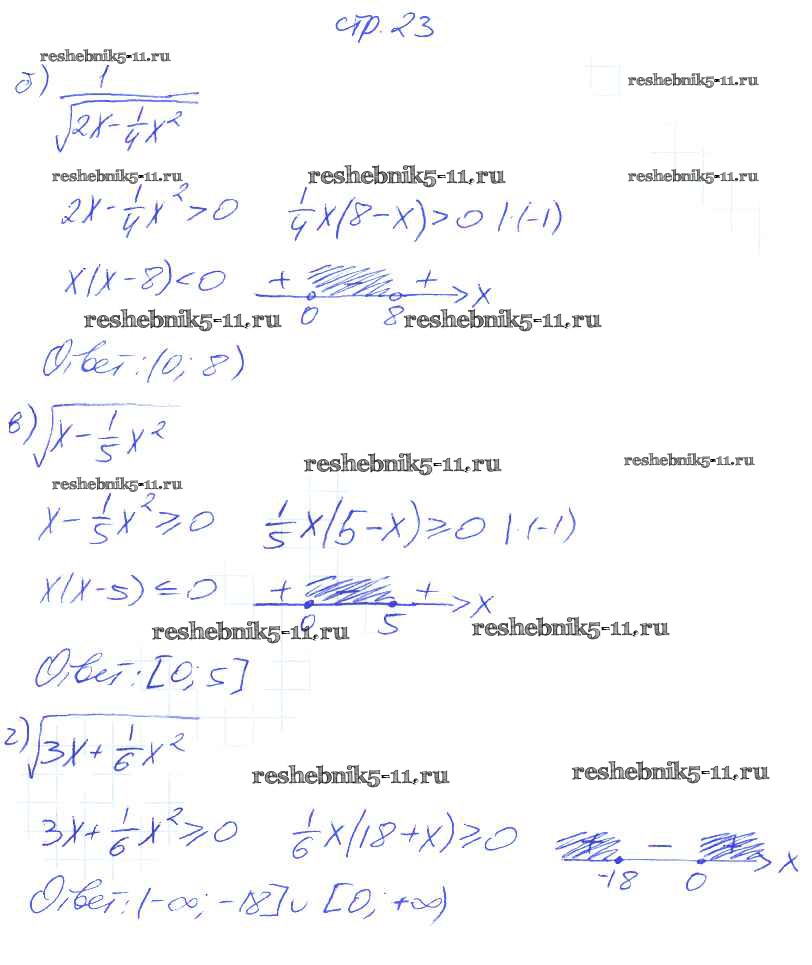 стр. 23
reshebnik5-11.ru
reshebnik5-11.ru
б) 1/√(2x - 1/4 x²)
reshebnik5-11.ru reshebnik5-11.ru reshebnik5-11.ru
2x - 1/4 x² > 0 1/4 x(8 - x) > 0 | · (-1)
x(x - 8) < 0 + + x
0 8
reshebnik5-11.ru reshebnik5-11.ru
Ответ: (0; 8)
в) √(x - 1/5 x²)
reshebnik5-11.ru reshebnik5-11.ru
reshebnik5-11.ru
x - 1/5 x² ≥ 0 1/5 x(5 - x) ≥ 0 | · (-1)
x(x - 5) ≤ 0 + + x
0 5
reshebnik5-11.ru reshebnik5-11.ru
Ответ: [0; 5]
г) √(3x + 1/6 x²)
reshebnik5-11.ru reshebnik5-11.ru
3x + 1/6 x² ≥ 0 1/6 x(18 + x) ≥ 0 + - + x
-18 0
Ответ: (-∞; -18] ∪ [0; +∞)